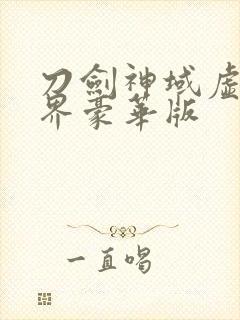 刀劍神域虛
界豪華版
一直唱